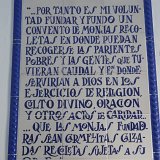 "...POR TANTO ES MI VOLUN-
TAD FUNDAR Y FUNDO UN
CONVENTO DE MONJAS RECO-
LETAS EN DONDE PUEDAN
RECOGERSE LAS PARIENTES
POBRES Y LAS GENTES QUE TU-
VIERAN CAUDAL Y EN DONDE
SERVIRIAN A DIOS EN LOS
EJERCICIOS DE RELIGION,
CULTO DIVINO, ORACION
Y OTROS ACTOS DE CARIDAD.
...QUE LAS MONJAS FUNDA-
RAS SEAN
DAS RECOLETAS SUJETAS A SU